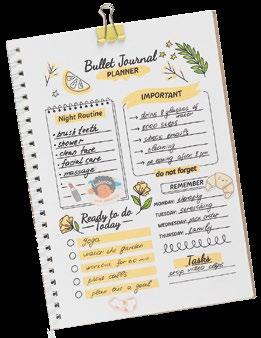 Bullet Journal
PLANNER
Night Routine
brush teeth
shower
clean face
facial care
massage
IMPORTANT
drink 8 glasses of
water
8000 steps
check emails
cleaning
no eating after 8 pm
do not forget
REMEMBER
MONDAY:
TUESDAY: stretching
WEDNESDAY: place order
THURSDAY: family
Ready to do
Today
yoga
water the garden
workout for 20 min
plan out a goal
Tasks
crop video clips